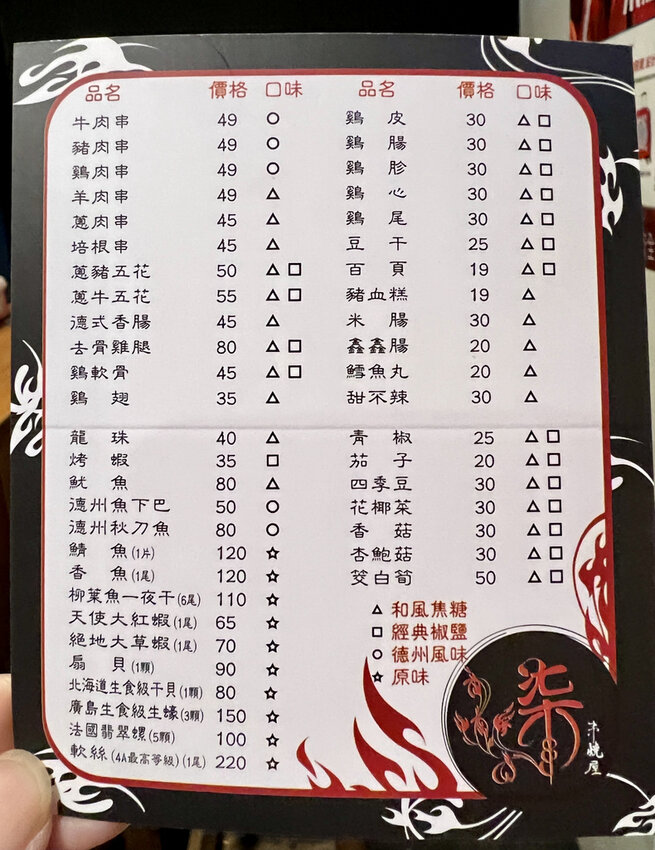 品名 價格 口味
牛肉串 49 ○
豬肉串 49 ○
鷄肉串 49 ○
羊肉串 49 △
蔥肉串 45 △
培根串 45 △
蔥豬五花 50 △□
蔥牛五花 55 △□
德式香腸 45 △
去骨雞腿 80 △□
鷄軟骨 45 △□
鷄翅 35 △
龍珠 40 △
烤蝦 35 □
魷魚 80 △
德州魚下巴 50 ○
德州秋刀魚 80 ○
鯖魚(1片) 120 ☆
香魚(1尾) 120 ☆
柳葉魚一夜干(6尾) 110 ☆
天使大紅蝦(1尾) 65 ☆
絕地大草蝦(1尾) 70 ☆
扇貝(1顆) 90 ☆
北海道生食級干貝(1顆) 80 ☆
廣島生食級生蠔(3顆) 150 ☆
法國翡翠螺(5顆) 100 ☆
軟絲(4A最高等級)(1尾) 220 ☆
品名 價格 口味
鷄皮 30 △□
鷄腸 30 △□
鷄胗 30 △□
鷄心 30 △□
鷄尾 30 △□
豆干 25 △□
百頁 19 △□
豬血糕 19 △
米腸 30 △
鑫鑫腸 20 △
鱈魚丸 20 △
甜不辣 30 △
青椒 25 △□
茄子 20 △□
四季豆 30 △□
花椰菜 30 △□
香菇 30 △□
杏鮑菇 30 △□
筊白筍 50 △□
△ 和風焦糖
□ 經典椒鹽
○ 德州風味
☆ 原味
柒串
燒屋